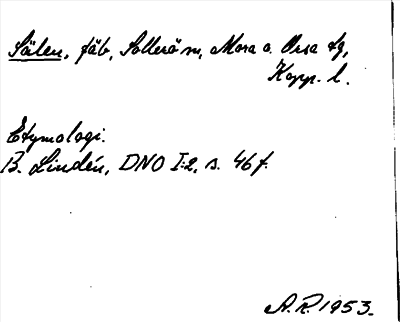 Sälen, fäb, Sollerö sn, Mora o. Orsa tg,
Kopp. l.
Etymologi.
B. Lindén, DNO I:2, s. 46 f.
A.R. 1953.